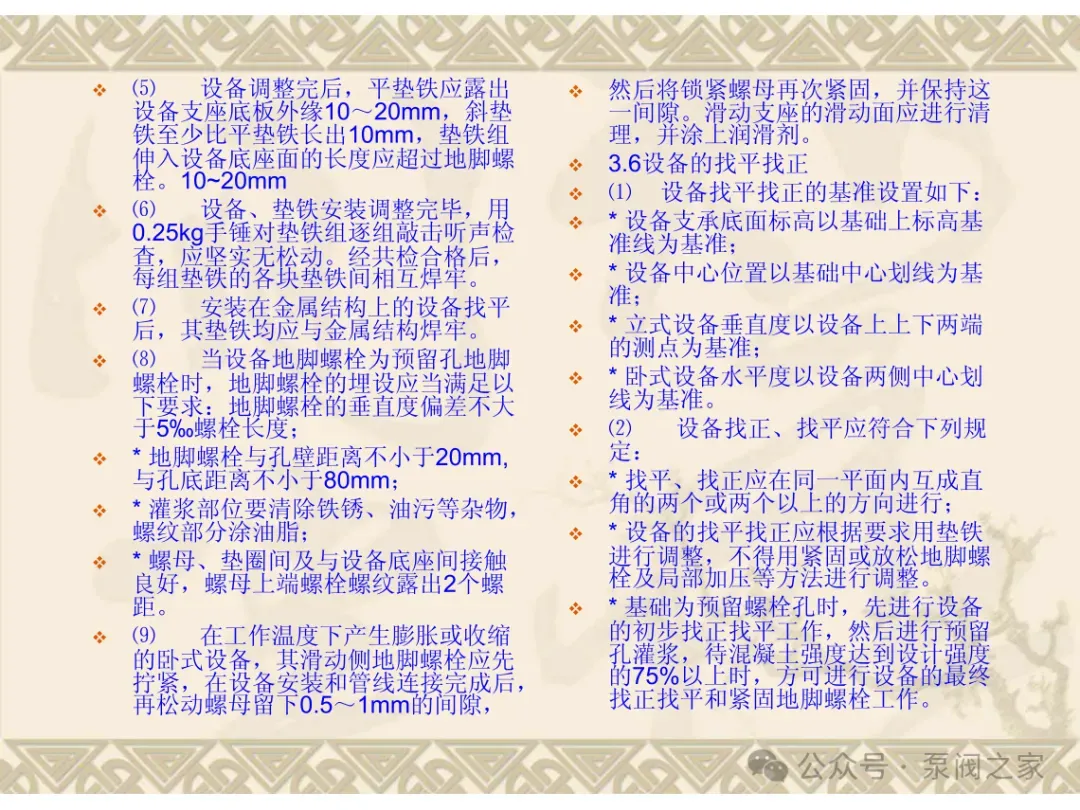 ⑸ 设备调整完后，平垫铁应露出
设备支座底板外缘10～20mm，斜垫
铁至少比平垫铁长出10mm，垫铁组
伸入设备底座面的长度应超过地脚螺
栓。10~20mm
⑹ 设备、垫铁安装调整完毕，用
0.25kg手锤对垫铁组逐组敲击听声检
查，应坚实无松动。经共检合格后，
每组垫铁的各块垫铁间相互焊牢。
⑺ 安装在金属结构上的设备找平
后，其垫铁均应与金属结构焊牢。
⑻ 当设备地脚螺栓为预留孔地脚
螺栓时，地脚螺栓的埋设应当满足以
下要求：地脚螺栓的垂直度偏差不大
于5‰螺栓长度；
* 地脚螺栓与孔壁距离不小于20mm，
与孔底距离不小于80mm；
* 灌浆部位要清除铁锈、油污等杂物，
螺纹部分涂油脂；
* 螺母、垫圈间及与设备底座间接触
良好，螺母上端螺栓螺纹露出2个螺
距。
⑼ 在工作温度下产生膨胀或收缩
的卧式设备，其滑动侧地脚螺栓应先
拧紧，在设备安装和管线连接完成后，
再松动螺母留下0.5～1mm的间隙，
然后将锁紧螺母再次紧固，并保持这
一间隙。滑动支座的滑动面应进行清
理，并涂上润滑剂。
3.6设备的找平找正
⑴ 设备找平找正的基准设置如下：
* 设备支承底面标高以基础上标高基
准线为基准；
* 设备中心位置以基础中心划线为基
准；
* 立式设备垂直度以设备上上下两端
的测点为基准；
* 卧式设备水平度以设备两侧中心划
线为基准。
⑵ 设备找正、找平应符合下列规
定：
* 找平、找正应在同一平面内互成直
角的两个或两个以上的方向进行；
* 设备的找平找正应根据要求用垫铁
进行调整，不得用紧固或放松地脚螺
栓及局部加压等方法进行调整。
* 基础为预留螺栓孔时，先进行设备
的初步找正找平工作，然后进行预留
孔灌浆，待混凝土强度达到设计强度
的75%以上时，方可进行设备的最终
找正找平和紧固地脚螺栓工作。
公众号 · 泵阀之家